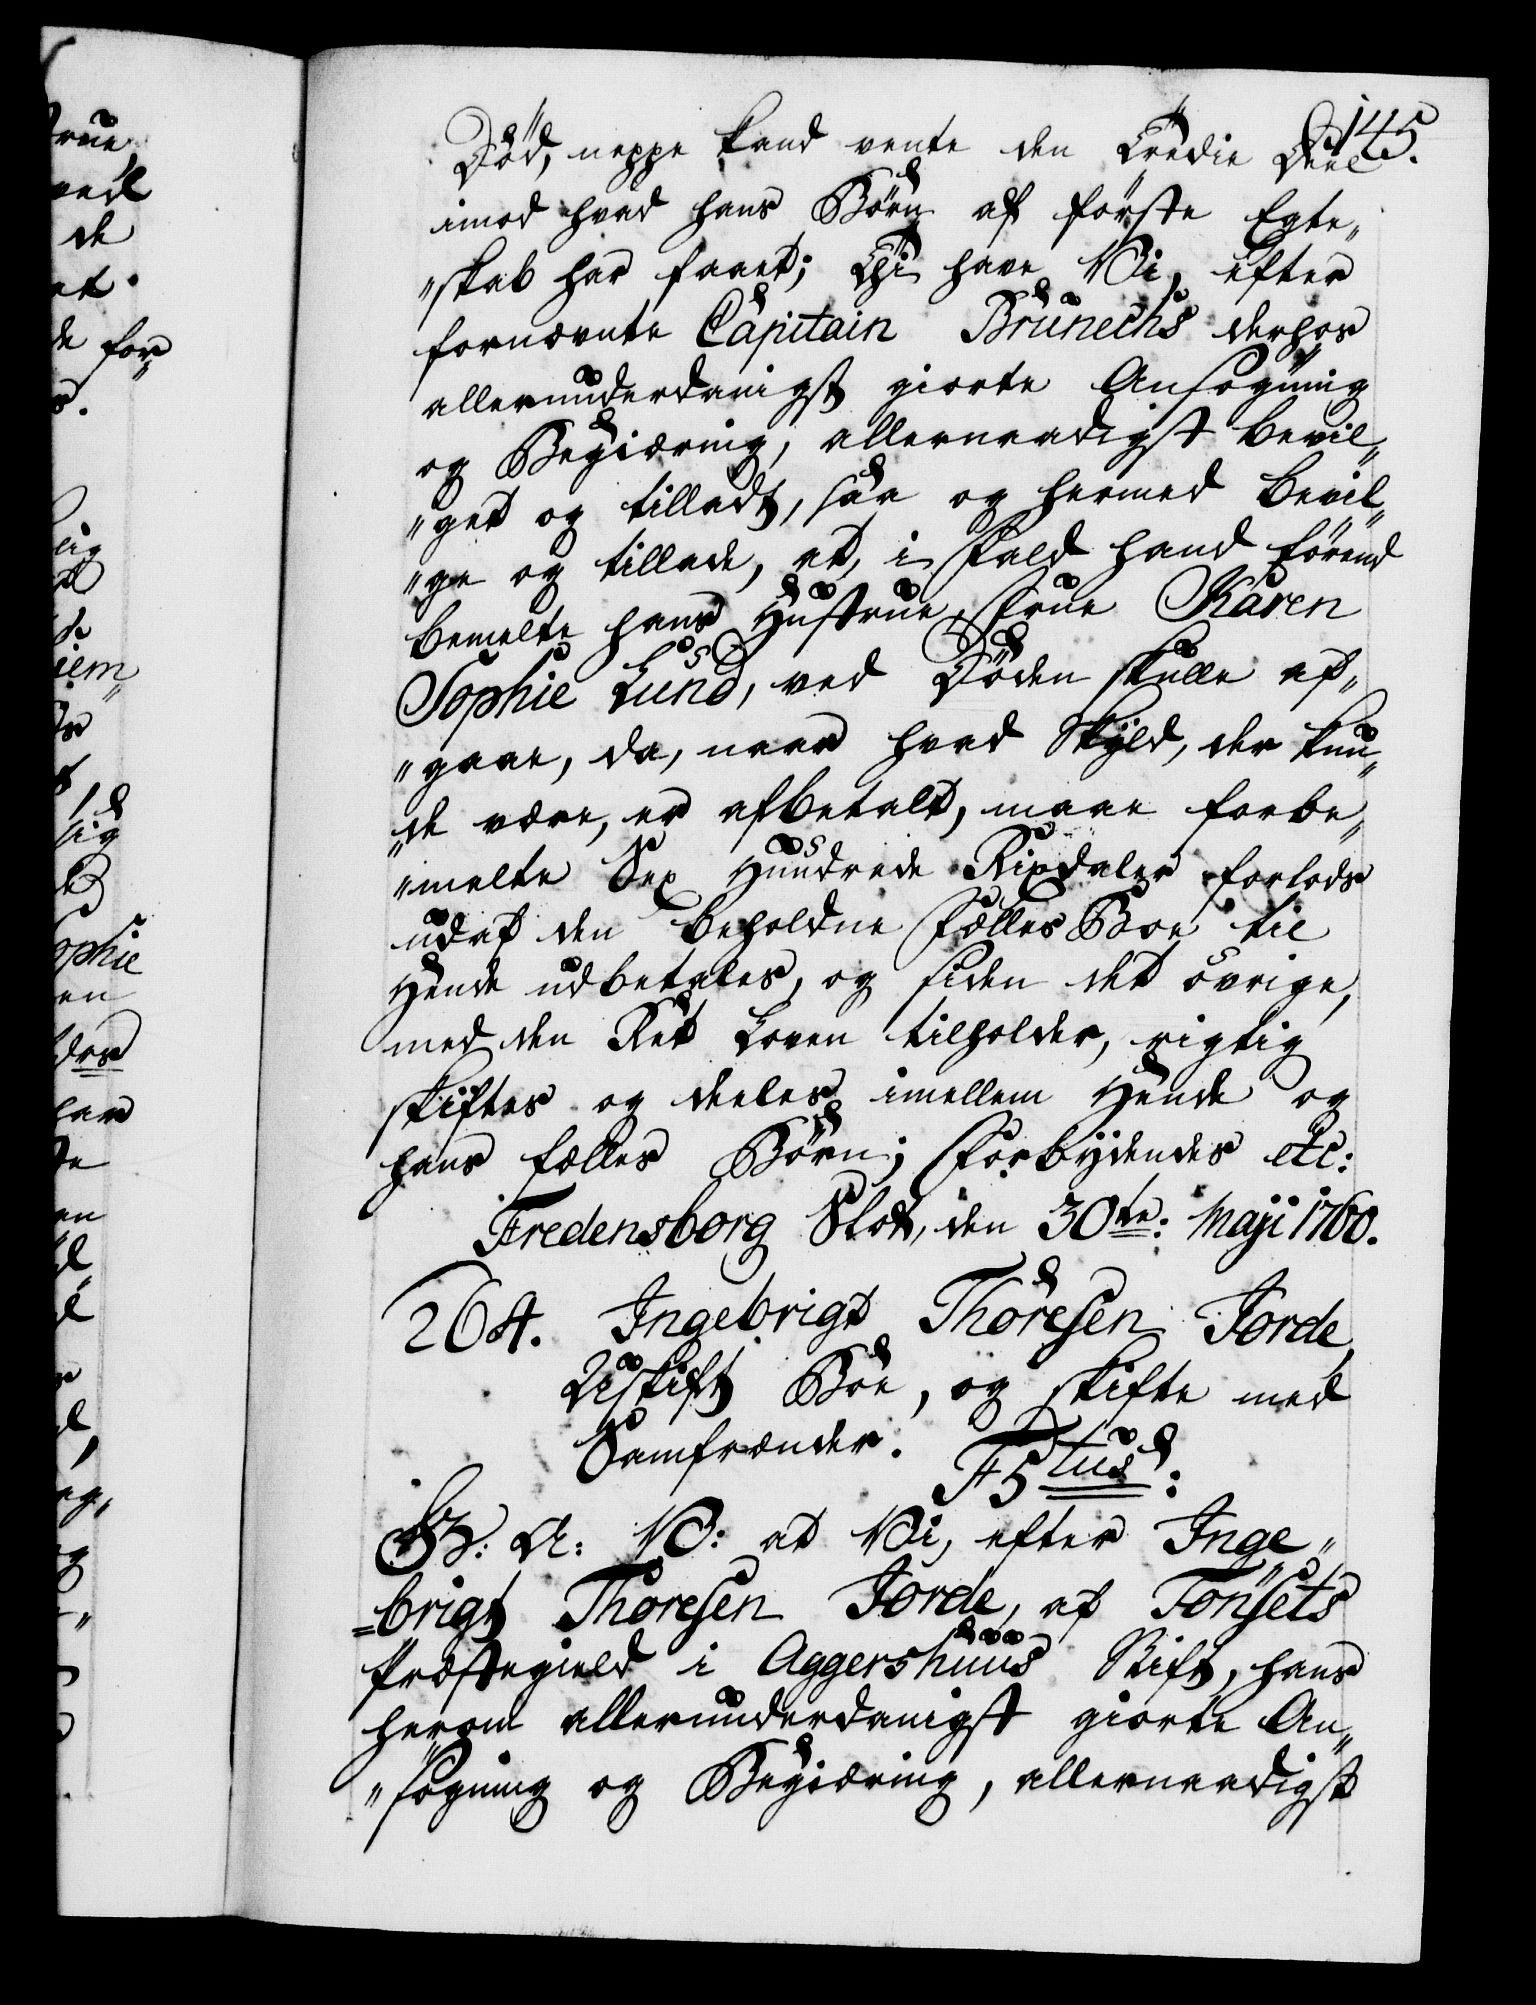 145.
Död, neppe kand vente den Tredie Deel
imod hvad hans Börn af förste Egte„
„skab har faaet; Thi have Vi, efter
fornævnte Capitain Brünechs derhos
allerunderdanigst giorte Ansögning
og Begiæring, allernaadigst bevil„
„get og tilladt, saa og hermed bevil„
„ge og tillade, at, i fald hand förend
bemelte hans Hustrue, Frue Karen
Sophie Lund, ved Döden skulle af„
„gaae, da, naar hvad Skyld, der kun„
„de være, er afbetalt, maae forbe„
„melte Sex Hundrede Rixdaler forlods
udaf den beholdne Fælles Boe til
Hende udbetales, og siden det övrige,
med den Ret Loven tilholder, rigtig
skiftes og deeles imellem Hende og
hans fælles Börn; Forbydendes etc:
Fredensborg Slot, den 30te: Maji 1760.
264. Ingebrigt Thoresen Jorde,
Uskift Boe, og skifte med
Samfrænder.
F5tus:
G: A: V: at Vi, efter Inge„
=brigt Thoresen Jorde, af Tönsets
Præstegield i Aggershuus Stift, hans
herom allerunderdanigst giorte An„
„sögning og Begiæring, allernaadigst
rue,
ved
de
et
de for„
lig
iem„
sig
ophie
en
dos
har
te
en
eg„